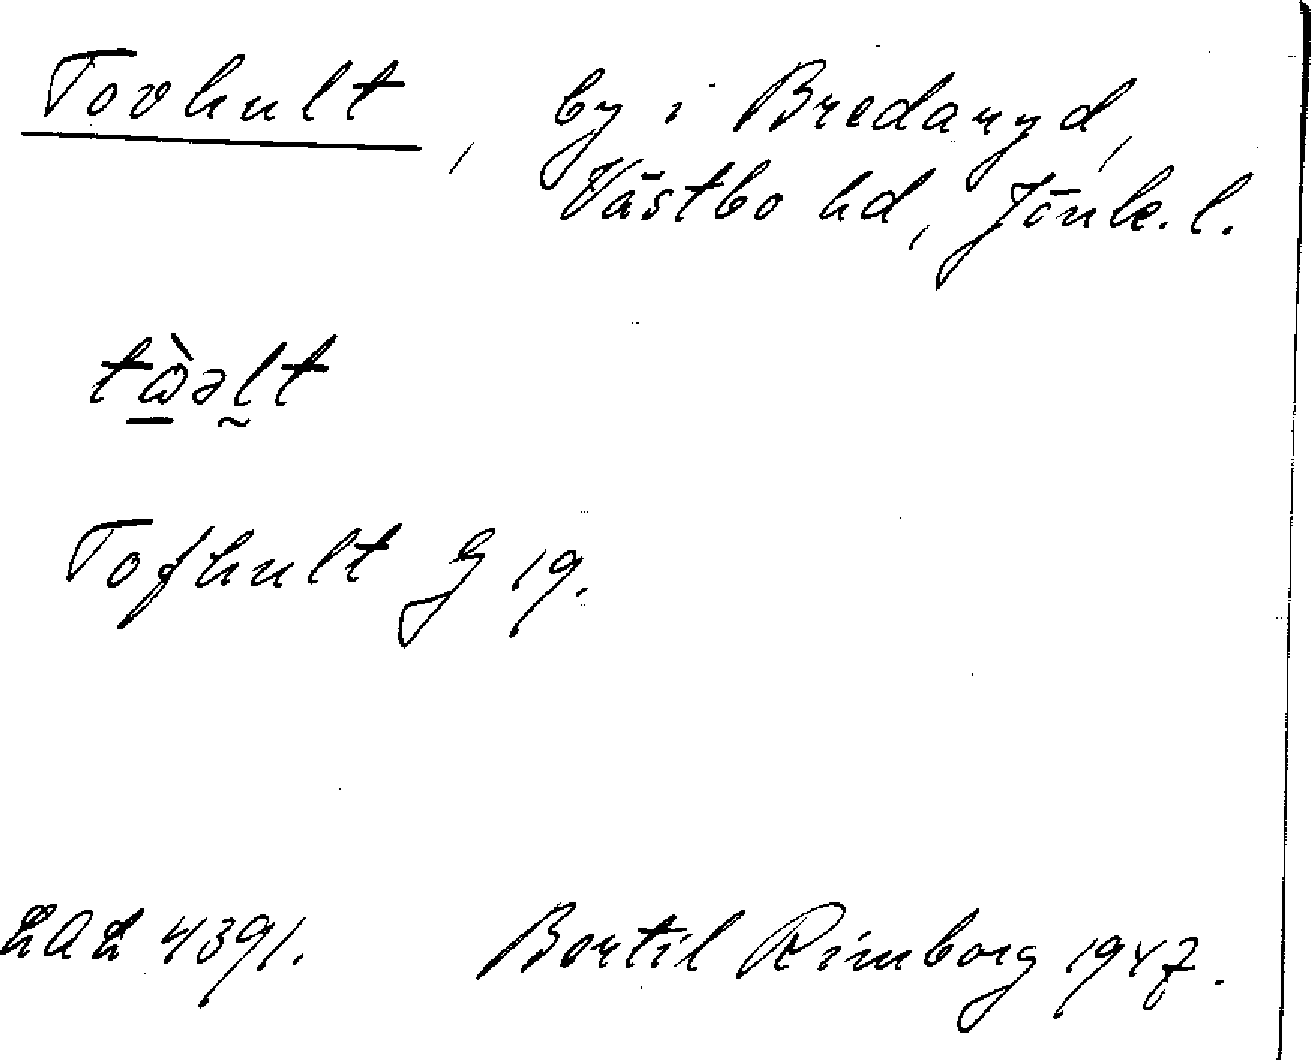 Tovhult, by i Bredaryd,
Västbo hd, Jönk. l.
tὼ̲əl̰t
Tofhult G 19.
LAL 4391. Bertil Rimborg 1947.